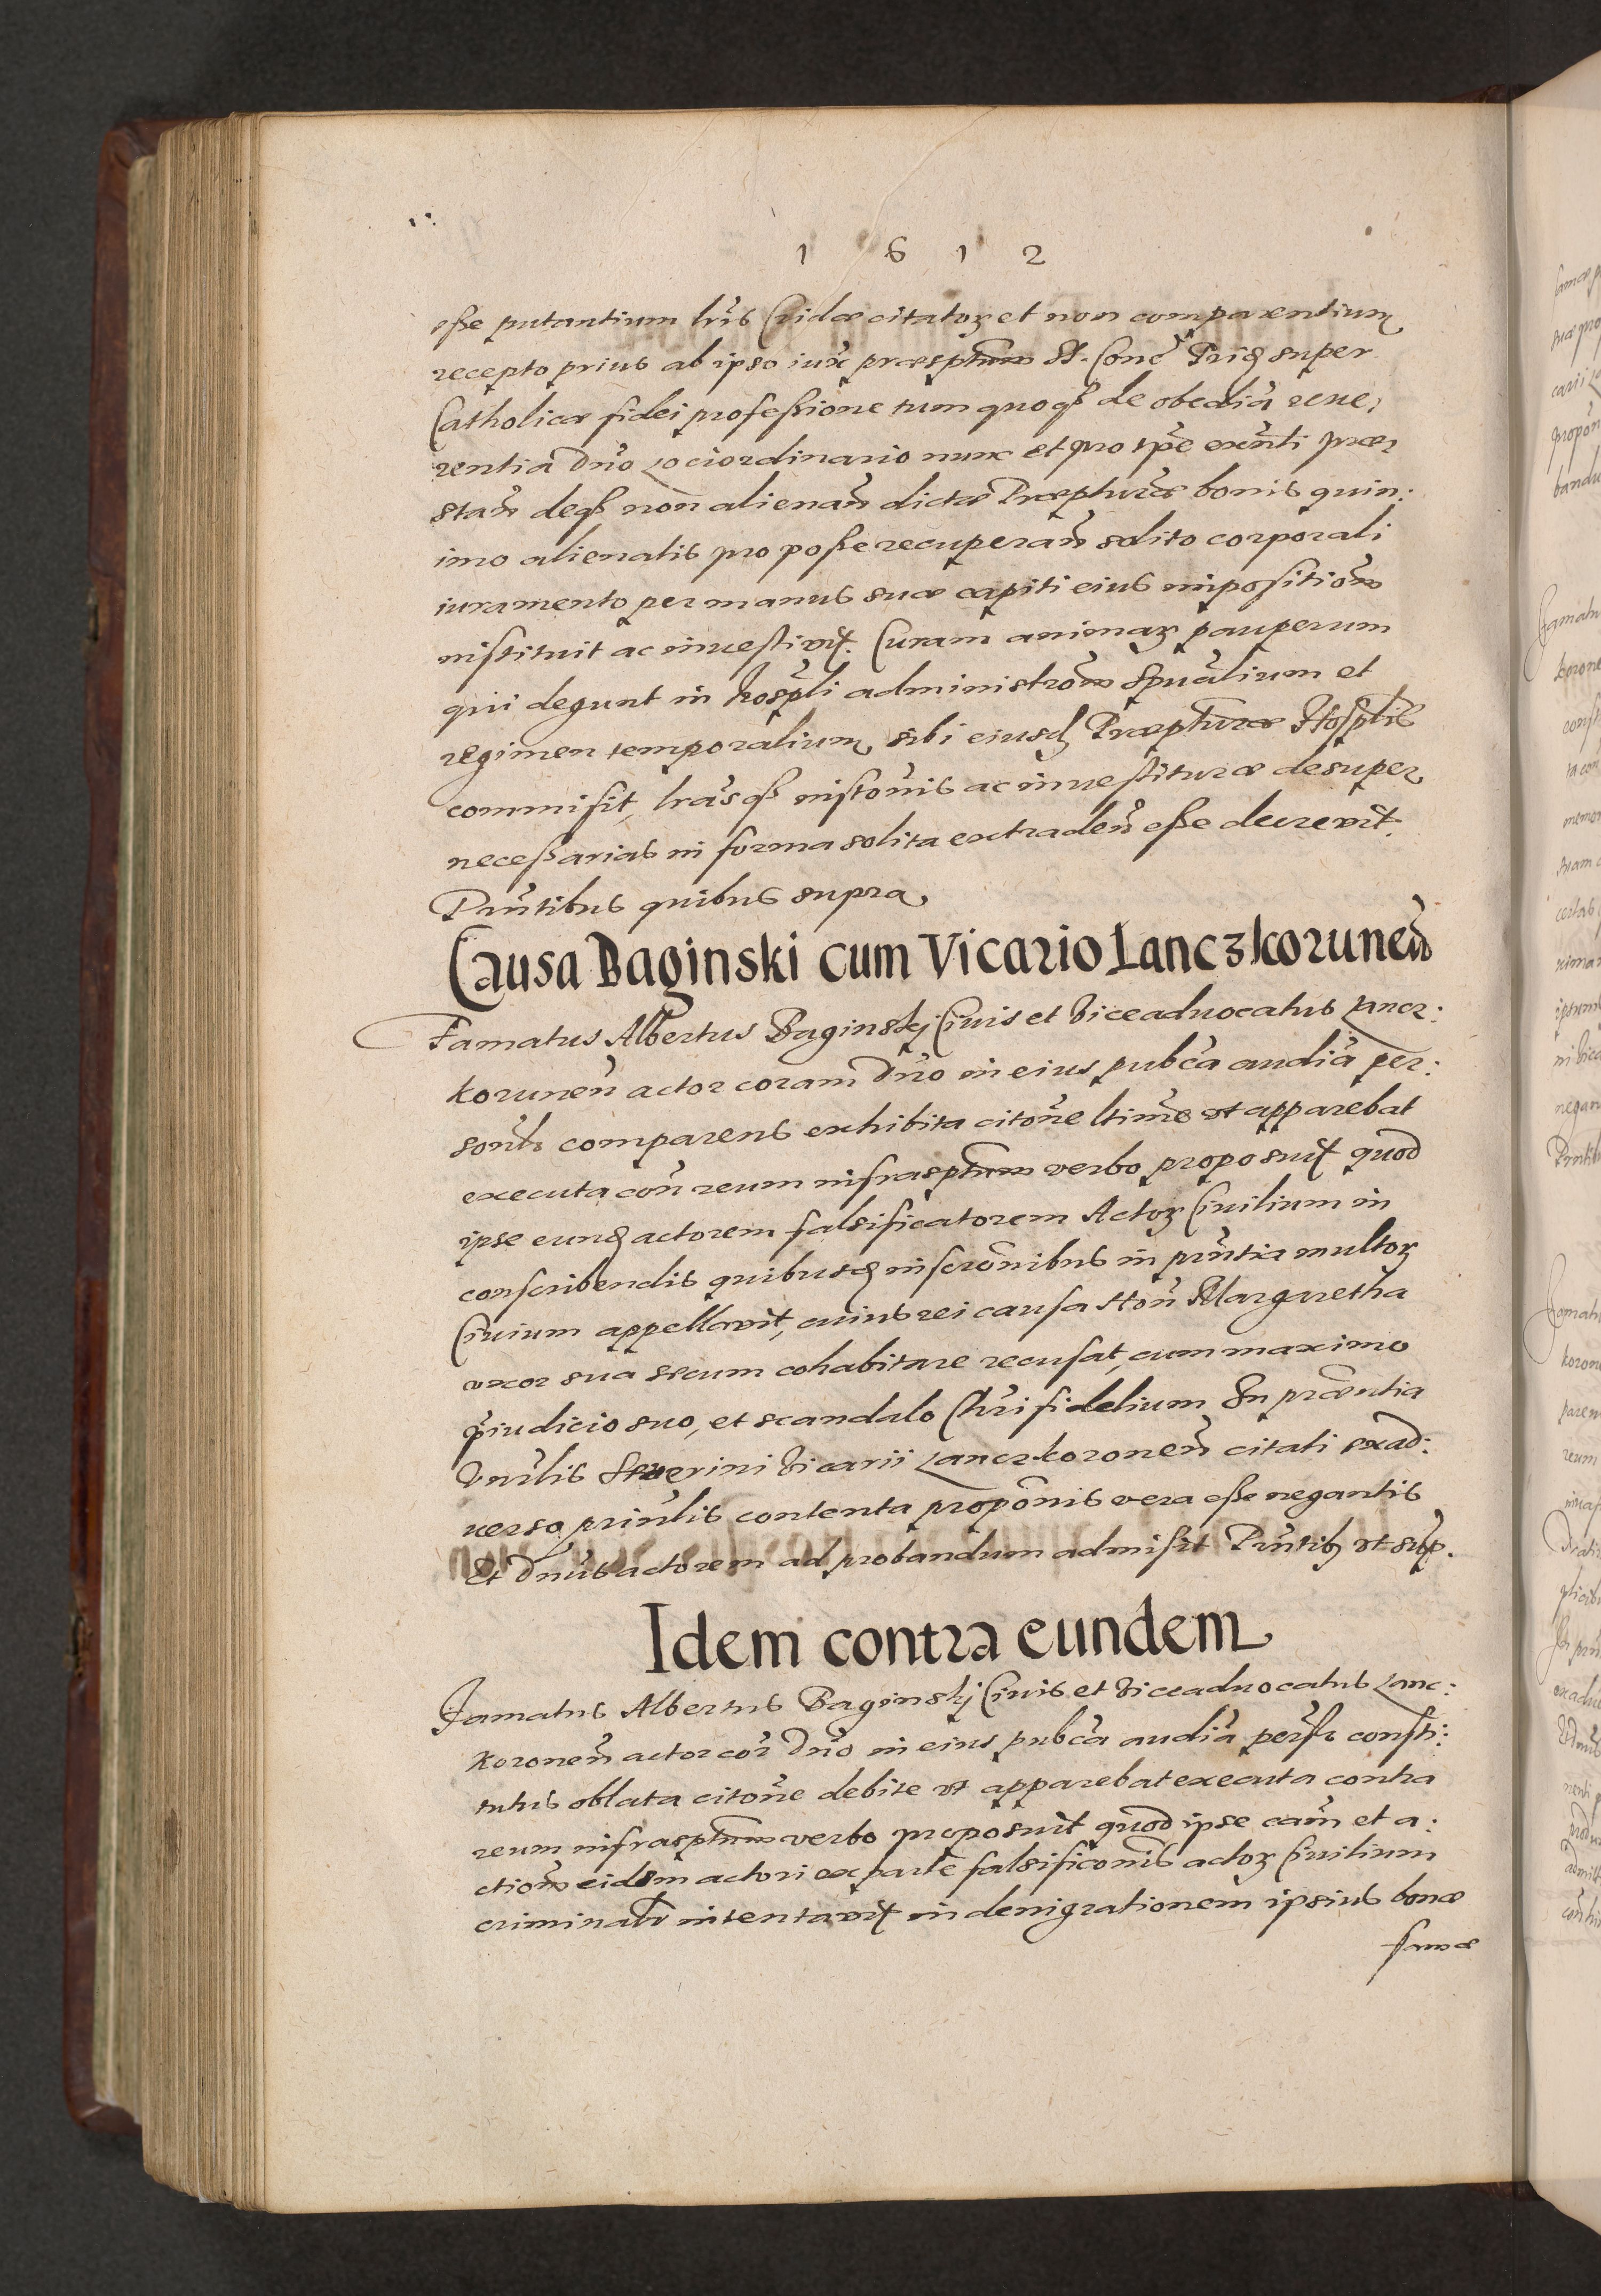 1 6 1 2
eße putantium lr̃is Cridæ citatoꝝ et non comparentium
recepto prius ab ipso iux̃ præsptum S. Conc̃ Triđ super
Catholicæ fidei profeßione tum quoqꝫ de obedia͂ reue:
rentia Dño Lociordinario nunc et pro tp̃e exñti præ:
stañ deqꝫ non alienañ dictæ Præpturæ bonis quin:
imo alienatis pro poße recuperañ solito corporali
iuramento per manus suæ capiti eius impositiom̃
instituit ac inuestiuit. Curam animaꝝ pauperum
qui degunt in hospli administrom̃ Spualium et
regimen temporalium sibi eiusđ Præpturæ Hosplis
commisit, lr̃asqꝫ instonis ac inuestituræ desuper
neceßarias in forma solita extradeñ eße decreuit.
Pñtibus quibus supra
Causa Baginski cum Vicario Lanczkoruneñ
Famatus Albertus Baginskj Ciuis et Viceaduocatus Lancz:
koruneñ actor coram Dño in eius pubca audia per:
sonlr comparens exhibita citone ltime vt apparebat
executa coñ reum infrasptum verbo proposuit quod
ipse eunđ actorem falsificatorem Actoꝝ Ciuilium in
conscribendis quibusđ inscronibus in pñtia multoꝝ
Ciuium appellauit, cuius rei causa Hoñ Margaretha
vxor sua secum cohabitare recusat, cum maximo
p̃iudicio suo, et scandalo Chri fidelium In præntia
Vnrlis Seuerini Vicarii Lanczkoroneñ citati exad:
uerso principlis contenta proponis vera eße negantis
Et Dnus actorem ad probandum admisit Pñtibꝫ vt sup.
Idem contra eundem
Famatus Albertus Baginskj Ciuis et Viceaduocatus Lanc:
koroneñ actor cor̃ Dño in eius pubca audia perslr consti:
tutus oblata citone debite vt apparebat executa contra
reum infrasptum verbo proposuit quod ipse cam̃ et a:
ctiom̃ eidem actori ex parte falsificonis actoꝝ Ciuilium
criminalr intentauit in denigrationem ipsius bonæ
famæ